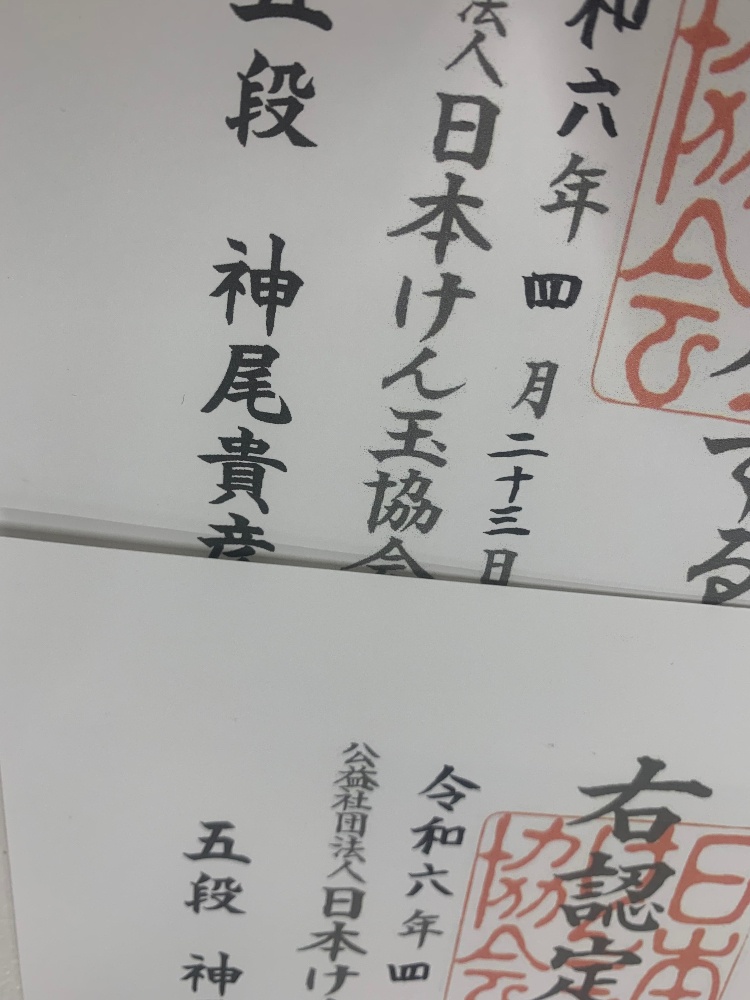 する
協会
和六年四月二十三日
法人日本けん玉協会
五段 神尾貴彦
右認定
日本
協会
令和六年四
公益社団法人日本け
五段 神